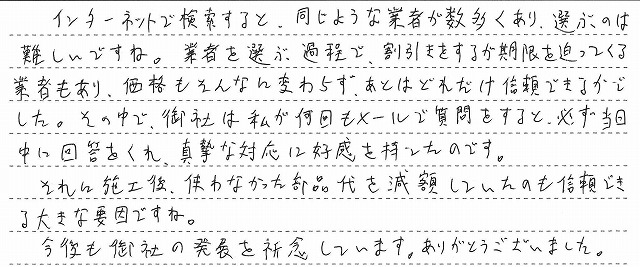 インターネットで検索すると、同じような業者が数多くあり、選ぶのは
難しいですね。業者を選ぶ過程で、割引きをするが期限を迫ってくる
業者もあり、価格もそんなに変わらず、あとはどれだけ信頼できるかで
した。その中で、御社は私が何回もメールで質問をすると、必ず当日
中に回答をくれ、真摯な対応に好感を持ったのです。
それに施工後、使わなかった部品代を減額していたのも信頼でき
る大きな要因ですね。
今後も御社の発展を祈念しています。ありがとうございました。